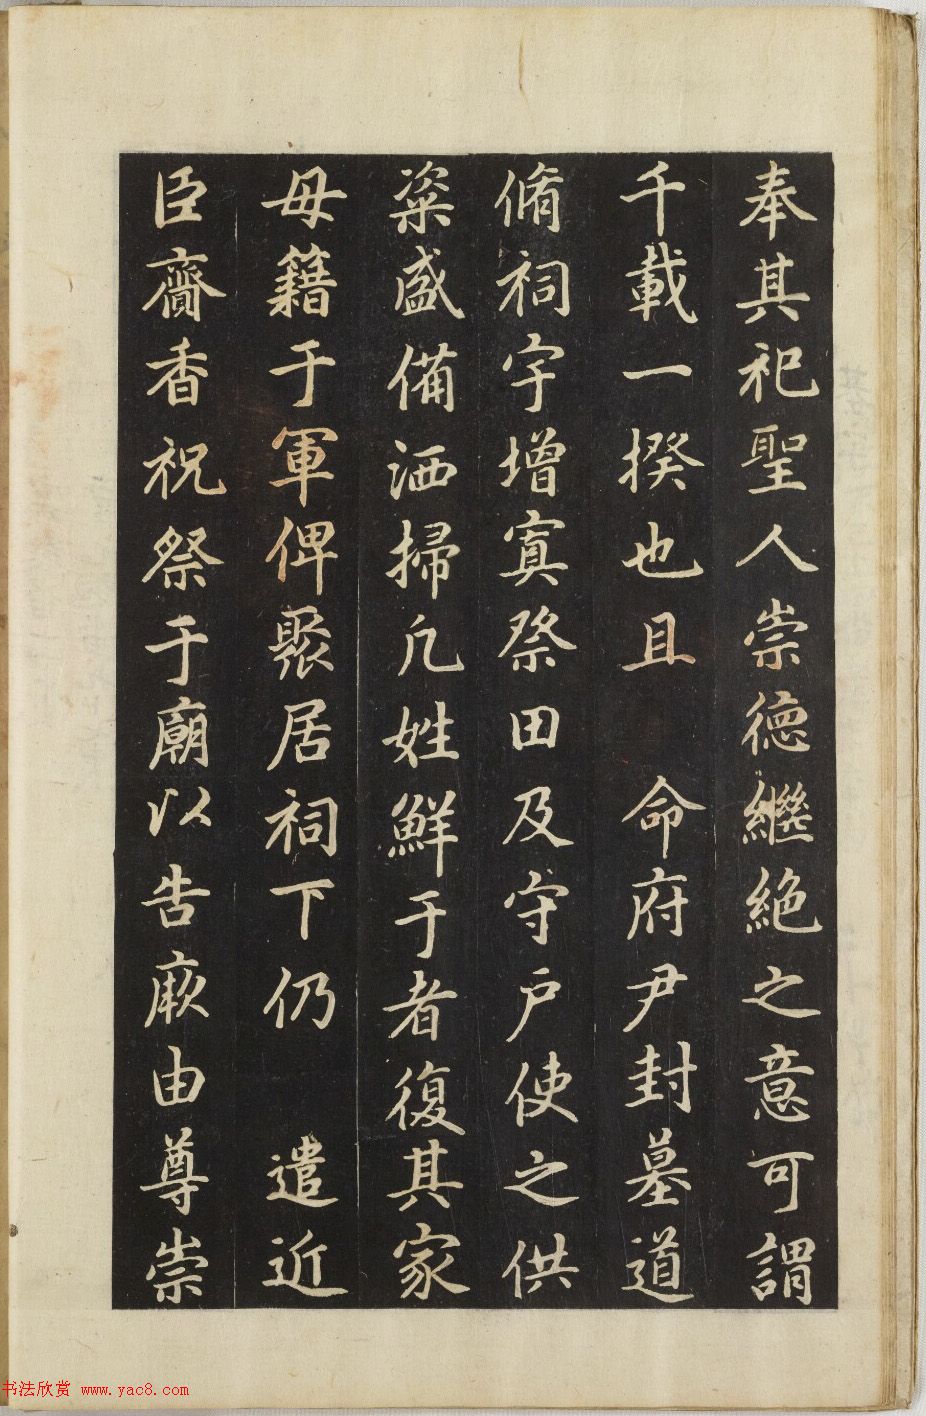 奉其祀聖人崇德繼絶之意可謂
千載一揆也且 命府尹封墓道
脩祠宇增寘祭田及守戶使之供
粢盛備洒掃凢姓鮮于者復其家
毋籍于軍俾聚居祠下仍 遣近
臣齎香祝祭于廟以告厥由尊崇
书法欣赏 www.yac8.com